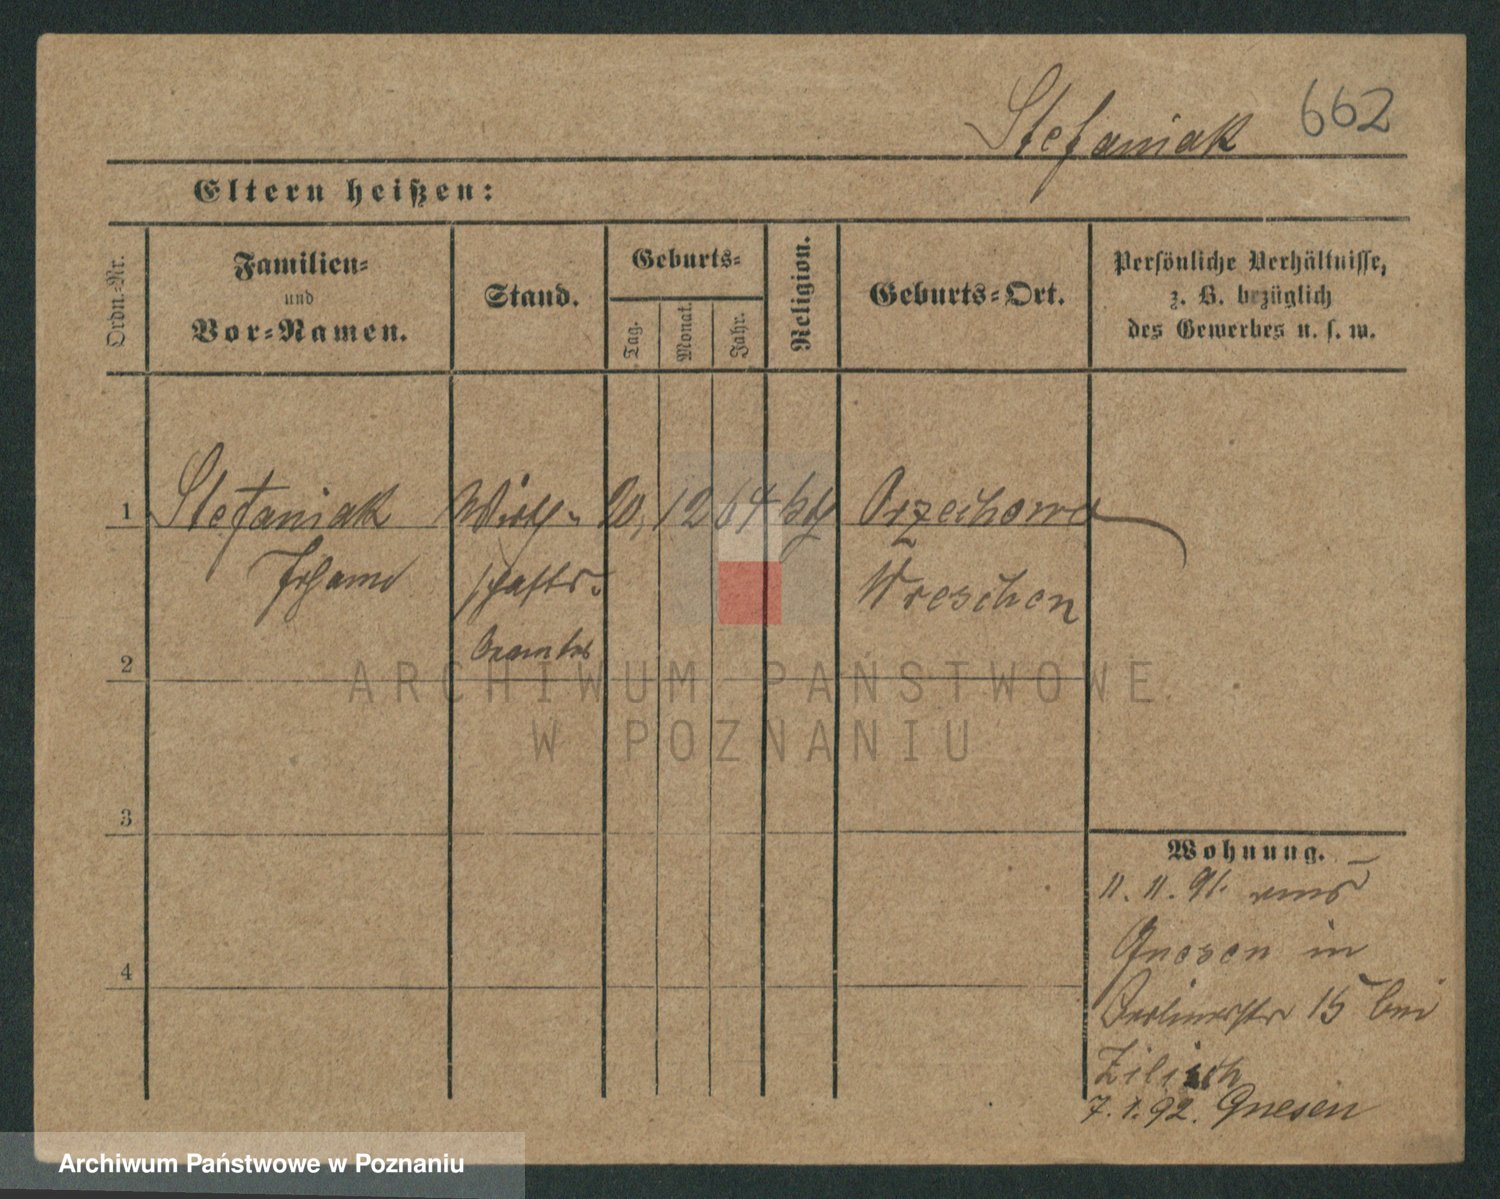 Stefaniak 662
Eltern heißen:
Ordn.-Nr.
Familien-
und
Vor-Namen.
Stand.
Geburts-
Tag.
Monat.
Jahr.
Religion.
Geburts-Ort.
Persönliche Verhältnisse,
z. B. bezüglich
des Gewerbes u. s. w.
1 Stefaniak Wirth- 20. 12 64 kth Orzechowo
Johann schafts- Wreschen
Beamter
2
3
4
Wohnung.
11. 11. 91. aus
Gnesen in
Berlinerstr 15 bei
Zilisch
7. 1. 92. Gnesen
ARCHIWUM PAŃSTWOWE
W POZNANIU
Archiwum Państwowe w Poznaniu